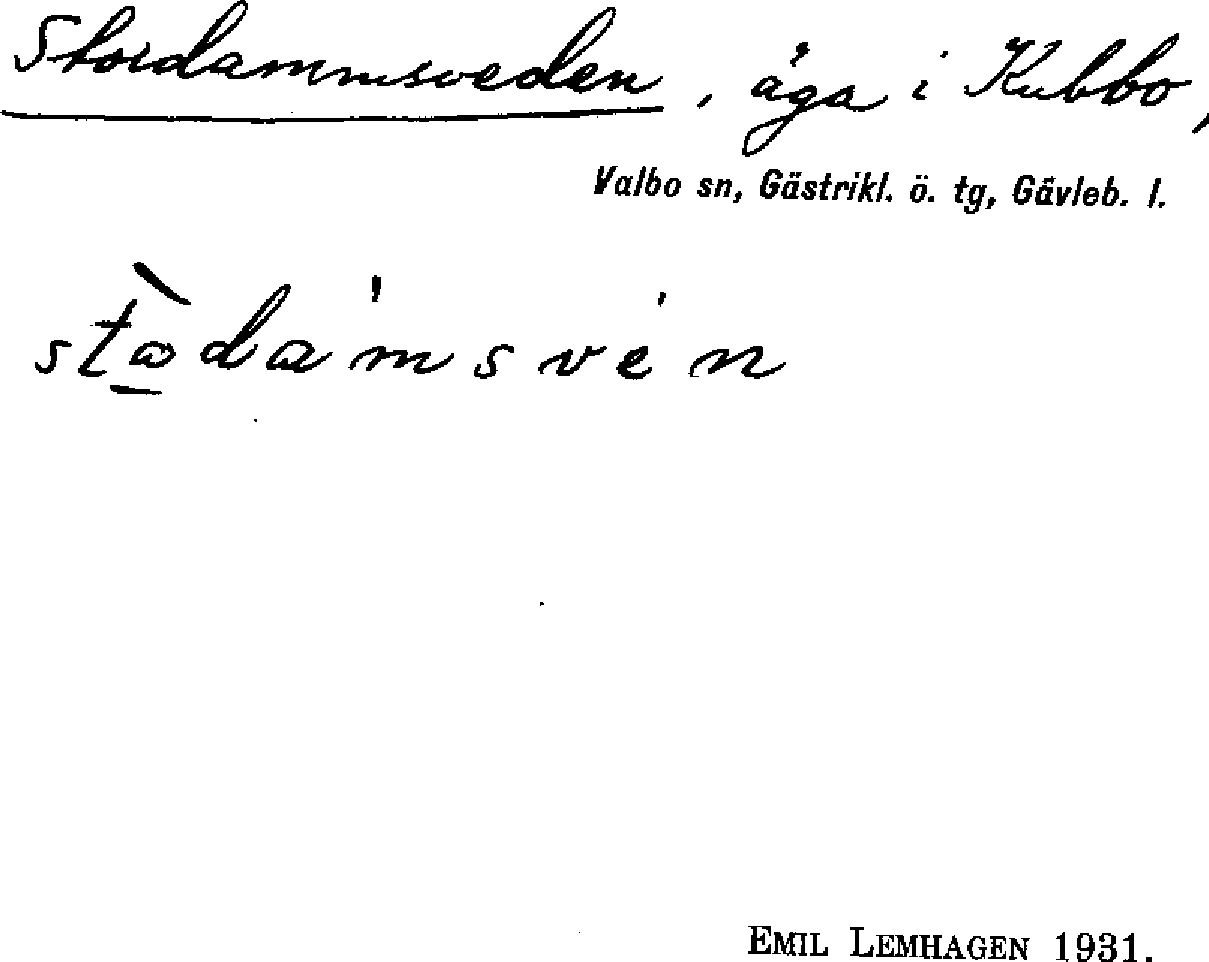 Stordammsveden, äga i Kubbo,
Valbo sn, Gästrikl. ö. tg, Gävleb. l.
EMIL LEMHAGEN 1931.